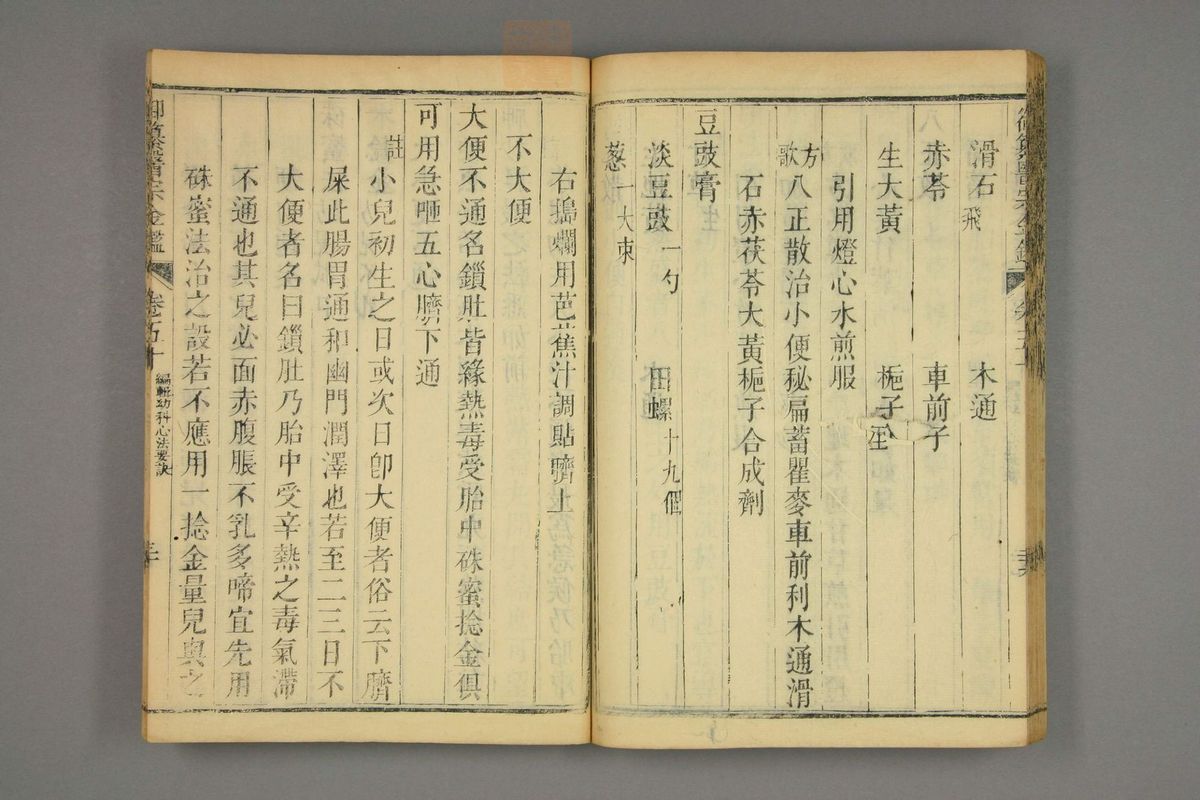 滑石飛 木通
赤苓 車前子
生大黃 梔子生
引用燈心水煎服
方歌 八正散治小便秘扁蓄瞿麥車前利木通滑
石赤茯苓大黃梔子合成劑
豆豉膏
淡豆豉一勺 田螺十九個
葱一大束
右搗爛用芭蕉汁調貼臍上
不大便
大便不通名鎖肚皆緣熱毒受胎中硃蜜捻金俱
可用急咂五心臍下通
註 小兒初生之日或次日卽大便者俗云下臍
屎此腸胃通和幽門潤澤也若至二三日不
大便者名曰鎖肚乃胎中受辛熱之毒氣滯
不通也其兒必面赤腹脹不乳多啼宜先用
硃蜜法治之設若不應用一捻金量兒與之
御纂醫宗金鑑 卷五十 編輯幼科心法要訣